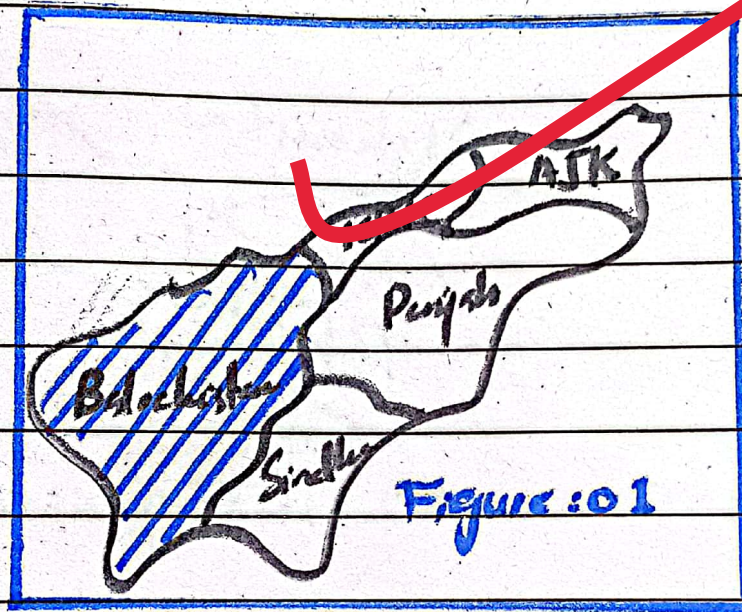 AJK
Punjab
Balochistan
Sindh
Figure:01